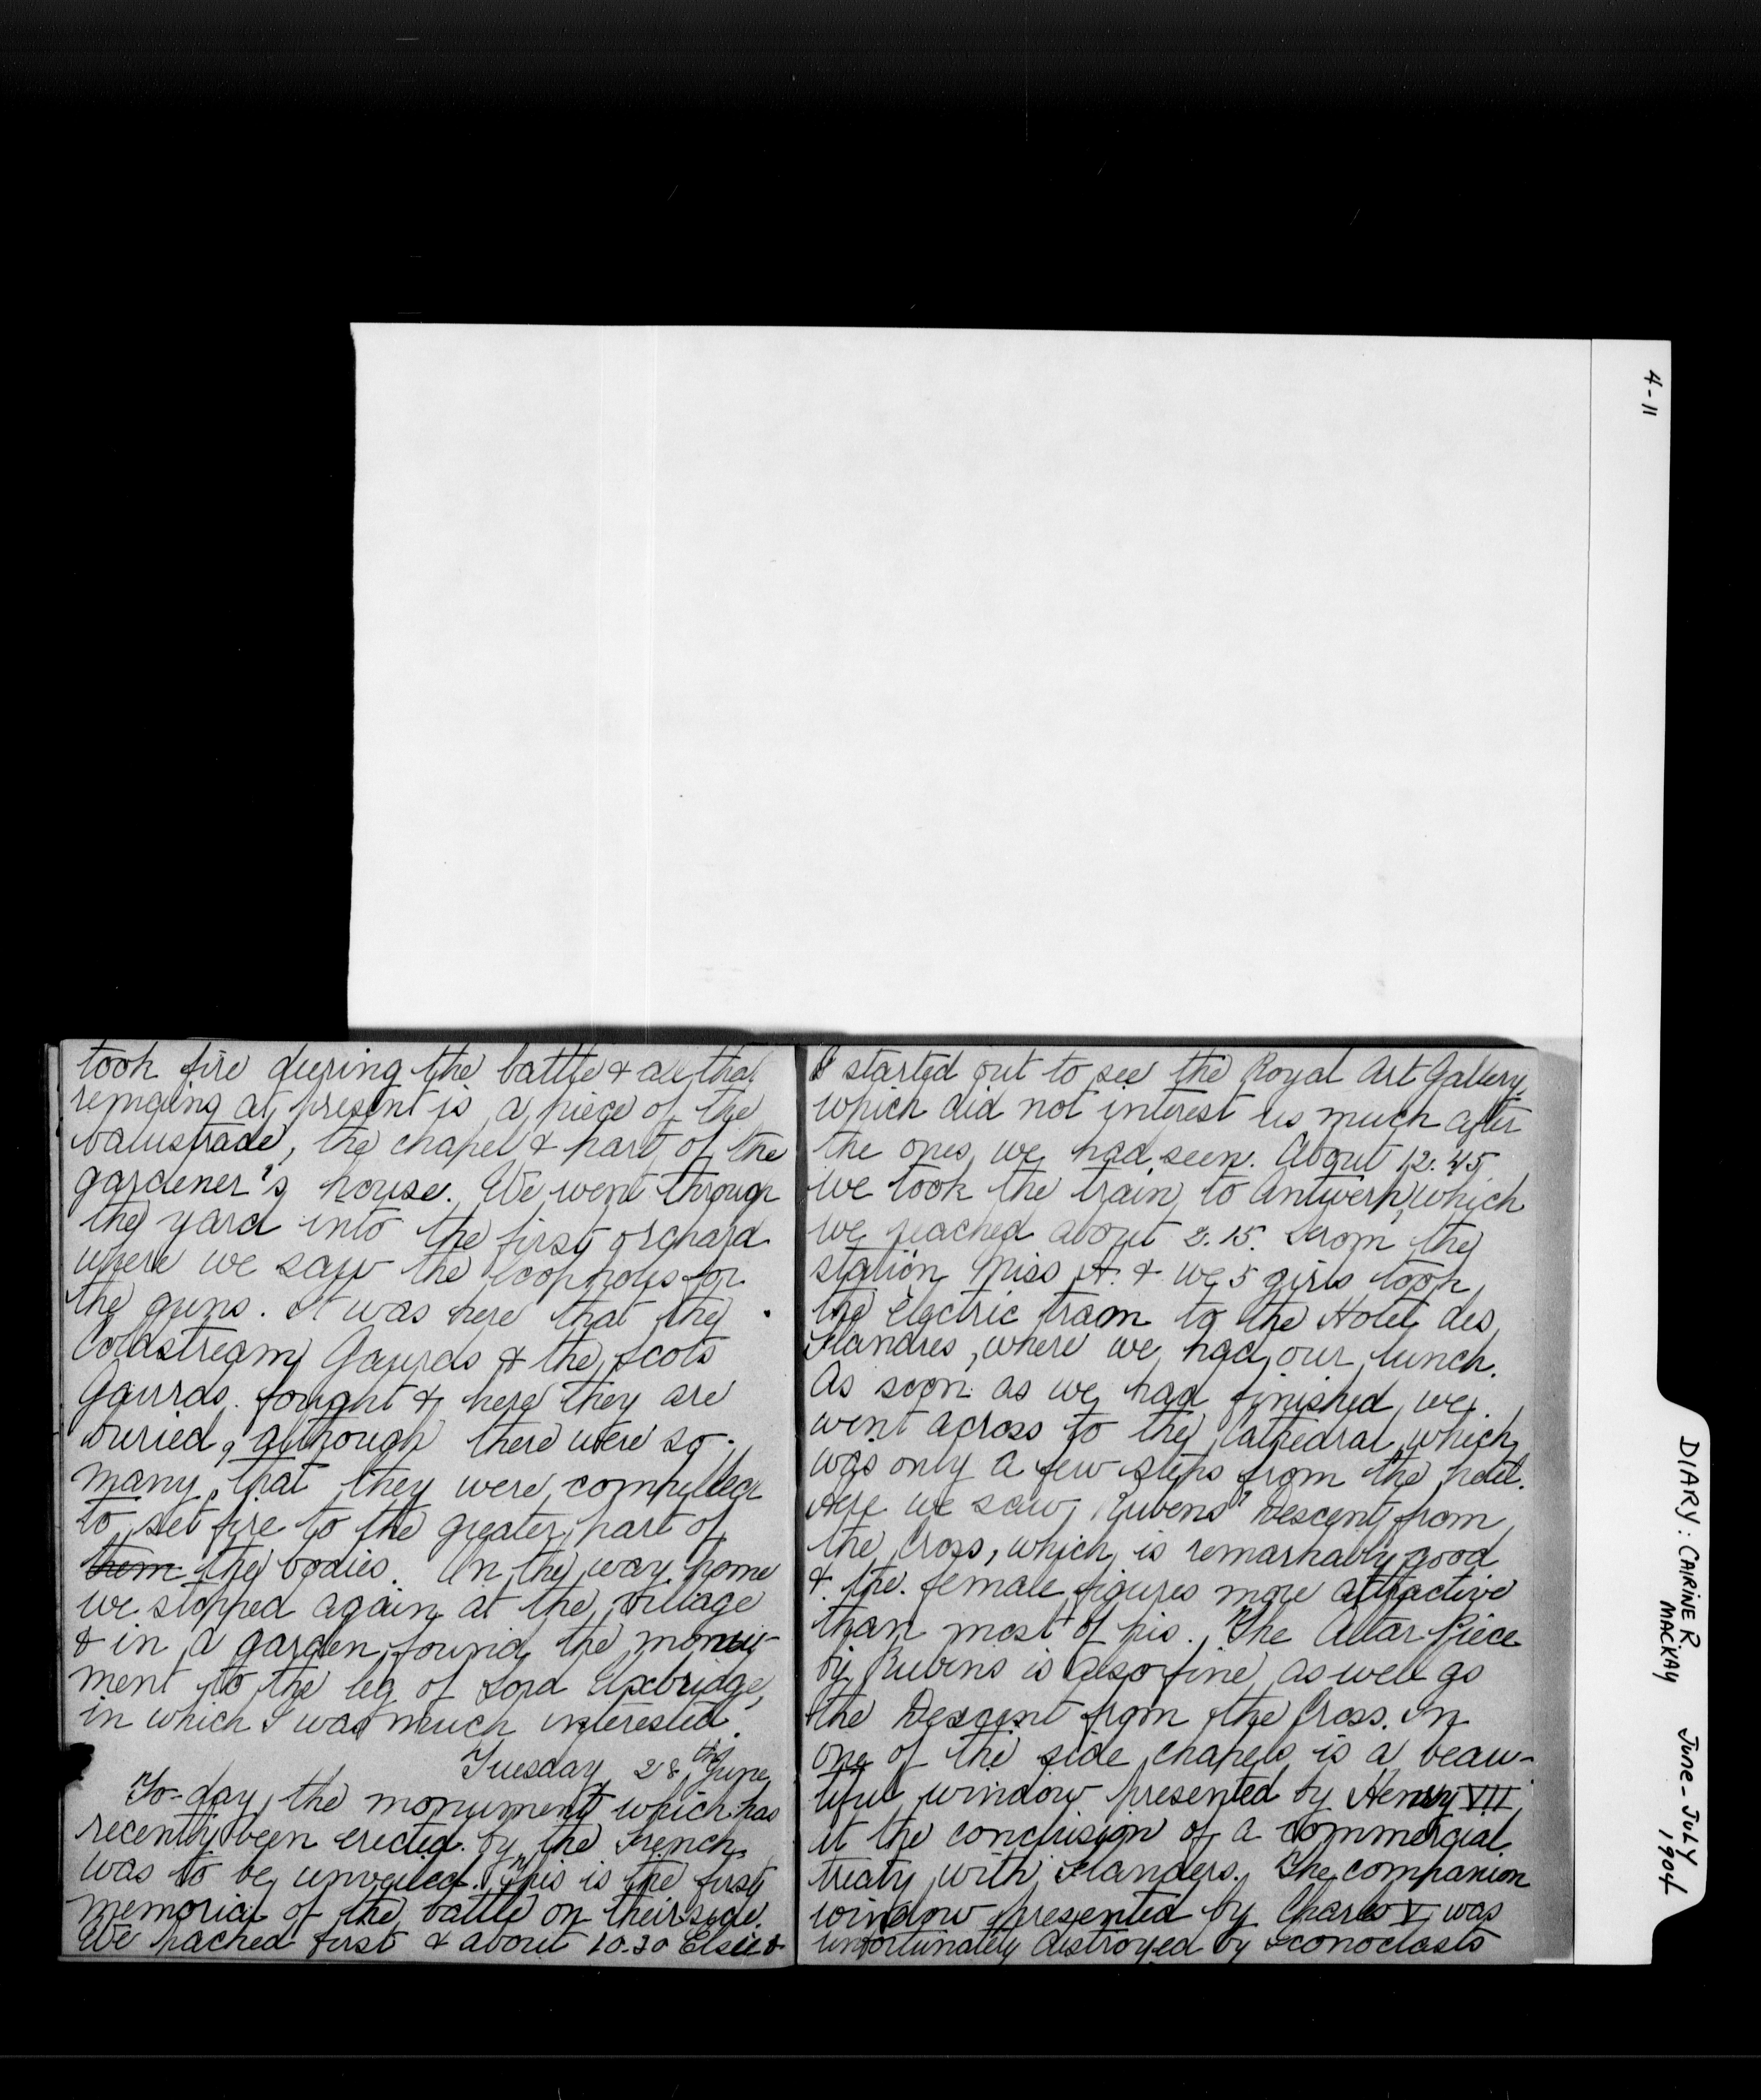 took fire during the battle & all that
remains at present is a piece of the
balustrade, the chapel & part of the
gardener's house. We went through
the yard into the first orchard
where we saw the loopholes for
the guns. It was here that the
Coldstream Gaurds & the Scots
Gaurds fought & here they are
buried, although there were so
many that they were compelled
to set fire to the greater part of
them the bodies. On the way home
we stopped again at the village
& in a garden found the monu-
ment to the leg of Lord Uxbridge,
in which I was much interested.
Tuesday 28th June
To-day the monument which has
recently been erected by the French
was to be unveiled. This is the first
memorial of the battle on their side.
We packed first & about 10.30 Elsie &
I started out to see the Royal Art Gallery
which did not interest us much after
the ones we had seen. About 12.45
we took the train to Antwerp, which
we reached about 2.15. From the
station Miss A. & we 5 girls took
the electric tram to the Hotel des
Flandres, where we had our lunch.
As soon as we had finished, we
went across to the Cathedral, which
was only a few steps from the hotel.
Here we saw Rubens' Descent from
the Cross, which is remarkably good
& the female figures more attractive
than most of his. The Altar Piece
by Rubens is also fine as well as
the Descent from the Cross. In
one of the side chapels is a beau-
tiful window presented by Henry VII
at the conclusion of a commercial
treaty with Flanders. The companion
window presented by Charles V was
unfortunately destroyed by Iconoclasts
4-11
DIARY: CAIRINE R
MACKAY
June - July
1904